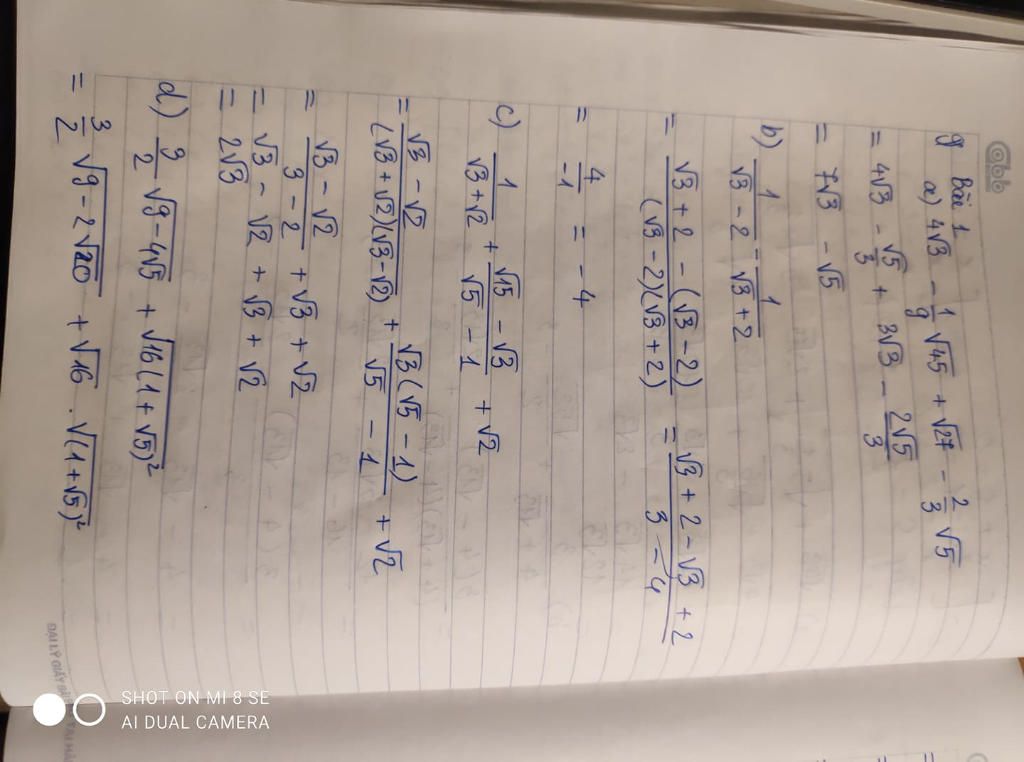 Bài 1
a) 4√3 - 1/9 √45 + √27 - 2/3 √5
= 4√3 - √5/3 + 3√3 - 2√5/3
= 7√3 - √5
b) 1/(√3 - 2) - 1/(√3 + 2)
= (√3 + 2 - (√3 - 2))/((√3 - 2)(√3 + 2)) = (√3 + 2 - √3 + 2)/(3 - 4)
= 4/-1 = -4
c) 1/(√3 + √2) + (√15 - √3)/(√5 - 1) + √2
= (√3 - √2)/((√3 + √2)(√3 - √2)) + √3(√5 - 1)/(√5 - 1) + √2
= (√3 - √2)/(3 - 2) + √3 + √2
= √3 - √2 + √3 + √2
= 2√3
d) 3/2 √(9 - 4√5) + √(16(1 + √5)²)
= 3/2 √(9 - 2√20) + √16 . √(1 + √5)²
SHOT ON MI 8 SE
AI DUAL CAMERA